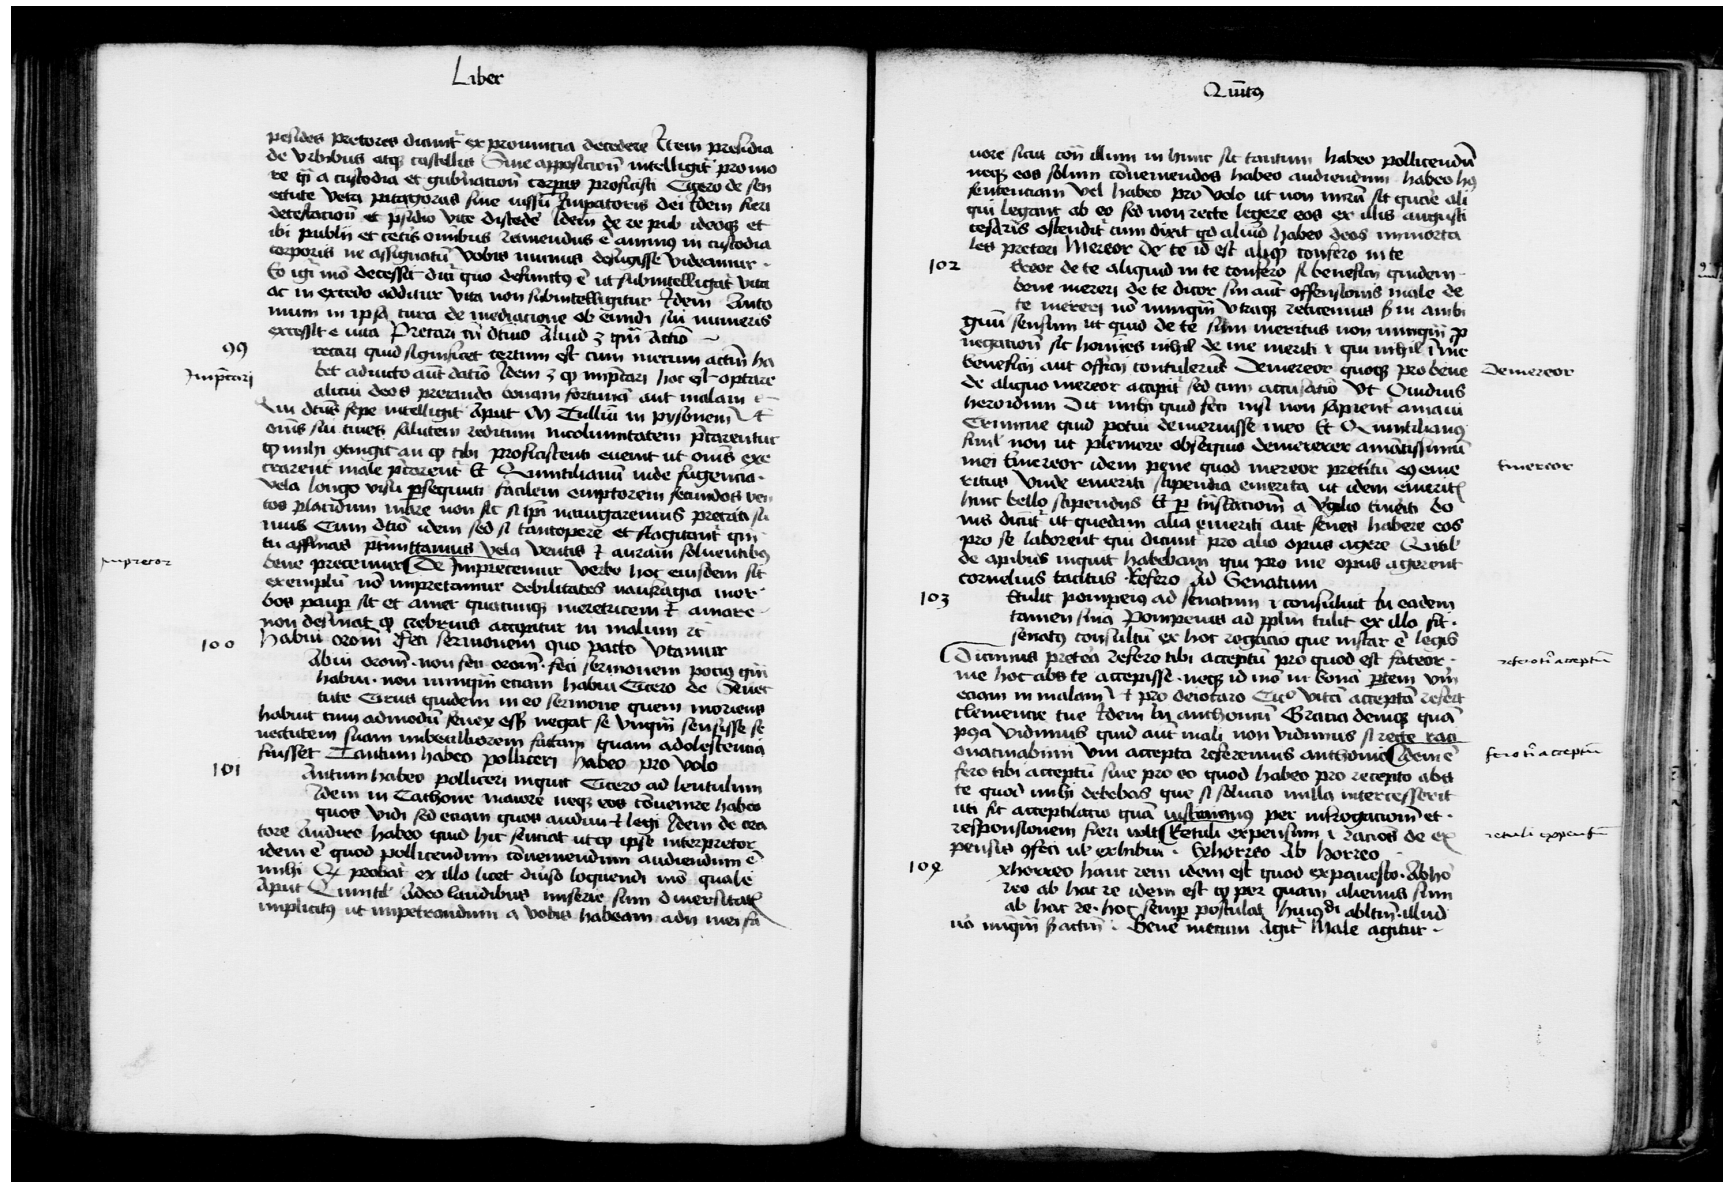 Liber
p̄sides pretores dicunt̄ ex prouincia decedere Itē presidia
de vrbibus atq̄ castellis Sine apposicion̄ intelligit̄ pro mo
re q̄i a custodia et gub̄nacion̄ corpis proficisci Cicero de sen
ectute vetā pitagoras sine iussū Impatoris dei Idem fieri
detestacion̄ et p̄sidio vite discede Idem de re pub ideoq̄ et
ibi publii et cet̄is om̄ibus retinendus ē animus in custodia
corporis ne assignatū vobis munus defugisse videamur ·
Eo igr̄ mō decessit dici quo defunctus ē ut subintelligat̄ vita
ac in excedo additur vita non subintelligitur Idem Anto
ninum in ipsa cura de mediacione ob eundi sui numeris
excessit e vita Precari cū dtiuo Aliud ꝫ q̄m Actiō
99
recari quid significet tertum est cum mecum actiū ha
bet adiūcto aut̄ datiō Idem ꝫ qꝫ imp̄cari hoc est optare
Imp̄cari
alicui deos precando bonam fortunā aut malam
dictūs sepe intelligit Aput M Tulliū in pysonem Vt
om̄is sui ciues salutem reditum incolumitatem p̄carentur
qꝫ mihi ꝯtingit an qꝫ tibi proficiscenti euenit ut om̄s exe
crarent male p̄carent̄ Et Quintilianū inde fugencia ·
vela longo visu psequuti facilem emptorem secundos ven
tos placidum mare non sic si ip̄i nauigaremus precati su
mus Cum dtiō idem sed si tantopere et flagitant̄ qui
tu affinas p̄mittamus vela ventis ⁊ auram soluentibꝫ
bene precemur De Imprecemur verbo hoc eiusdem sit
imprecor
exemplū nō imprecamur debilitates naufragia mor
bos paup̄ sit et amet quamcunqꝫ meretricem ⁊ amare
non desinat qꝫ crebrius accipitur in malum ꝛc
100
habui orōm feci sermonem quo pacto vtamur
Abui orōm · non feci orōm · feci sermonem pocius q̄m
habui · non nunq̄m etiam habui Cicero de Senec
tute Cirus quidem in eo sermone quem moriens
habuit cum admodū senex ess̄ negat se vnq̄m sensisse se
nectutem suam imbecilliorem factam quam adolescencia
fuisset Tantum habeo polliceri habeo pro volo
101
Antum habeo polliceri inquit Cicero ad lentulum
Idem in Cathone maiore neqꝫ eos cōuenire habeo
quos vidi sed etiam quos audiui ⁊ legi Idem de ora
tore Audire habeo quid hic senciat ut qꝫ ipse interpretor
idem ē quod pollicendum cōueniendum audiendum ē
mihi Qꝫ probat̄ ex illo licet diuso loquendi mō quale
Aput Quintil Adeo laudibus miserie sum diuersitate
implicitus ut impetrandum a vobis habeam adn mei fa
Quītꝰ
uore sicut cōn illum in hunc sic tantum habeo pollicendū
neqꝫ eos solum cōueniendos habeo audiendum habeo hꝰ
sentenciam vel habeo pro volo ut non mirū sit gracie ali
qui legant ab eo sed non recte legere eos ex illis augusti
cesaris ostendit̄ cum dixit qd aliud habeo deos immorta
les precari Mereor de te id est aliqꝫ confero in te
102
Ereor de te aliquid in te confero si beneficii quidem ·
bene mereri de te dicor sin aūt offensionis male de
te mereri nō nunq̄m vtraqꝫ reticemus s̄ in ambi
guū sensum ut quid de te sum meritus non nunq̄m p
negacion̄ sic homines nihil de me meriti ⁊ qui nihil ī me
beneficii aut officii contulerūt Demereor quoqꝫ pro bene
Demereor
de aliquo mereor accipit̄ sed cum accusatiō Vt Ouidius
heroidum Dic mihi quid feci nisi non sapient̄ amaui
Crimine quid potui demeruisse meo Et Quintilianꝰ
simil non ut plemiore obsequio demererer amātissimū
mei Emereor idem pene quod mereor preteritū eꝰ eme
Emereor
ritus vnde emeriti stipendia emerita ut idem emeritꝭ
hinc bello stipendiis Et p̄ trāslacionē a Vgilio emeriti bo
ues dicūt̄ ut quedam alia emeriti aut senes habere eos
pro se laborent qui dicunt̄ pro alio opus agere Quītil
de apibus inquit habebam qui pro me opus agerent
cornelius tacitus · Refero Ad Senatum
103
Etulit pompeiꝰ ad senatum ⁊ consuluit In eadem
tamen sma Pompeius ad pplm̄ tulit ex illo fit ·
senatꝰ consultū ex hoc rogacio que instar ē legis
Dicimus pretea Refero tibi acceptū pro quod est fateor ·
refero tⁱ acceptū
me hoc abs te accepisse · neqꝫ id mō in bonā partem vm̄
etiam in malam Vt pro deiotaro Cicº vitā acceptā refert
clemencie tue Idem In anthoniū Gracia denique quā
pꝰea vidimus quid aūt mali non vidimus si recte raci
onatnabim̄i vm̄ accepta referemus anthonio Idem ē
fero tⁱ acceptū
fero tibi acceptū siue pro eo quod habeo pro recepto abs
te quod mihi debebas que si solucio nulla intercesserit
uti fit acceptilacio quā iustinianꝰ per int̄rogacionē et ·
responsionem fieri volt Retuli expensum ⁊ racōes de ex
retuli expensū
pensis ꝯfeci uel exhibui · Exhorreo Ab horreo
104
xhorreo hanc rem idem est quod expauesco · Abho
reo ab hac re idem est qꝫ per quam alienus sum
ab hac re · hoc semp̄ postulat huiusdi abltm̄ · illud
nō nunq̄m s̄ actm̄ · Bene mecum agit̄ Male agitur ·